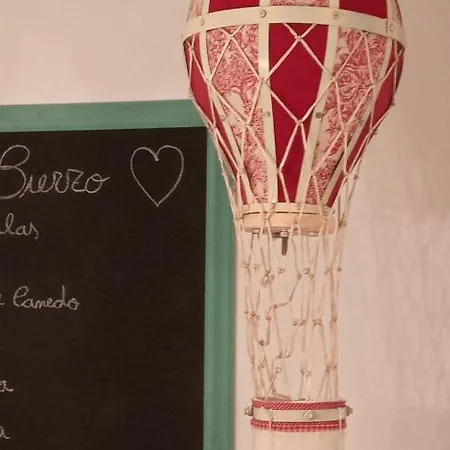 Bierzo
las
e Canedo
a
a